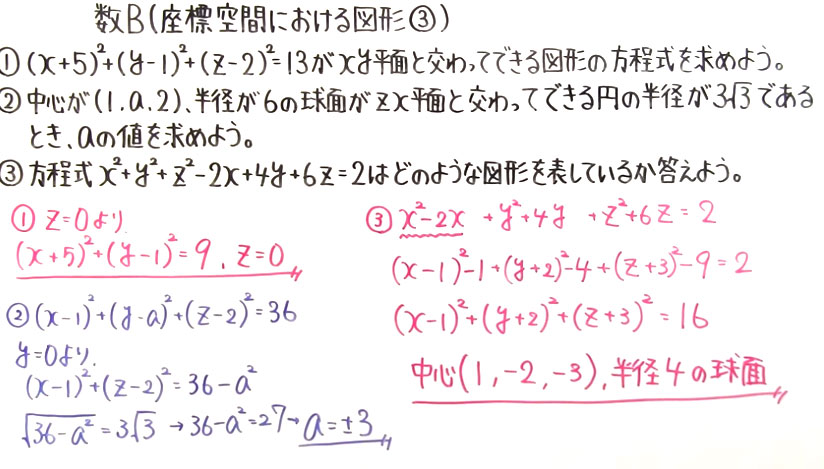 数B(座標空間における図形③)
①(x+5)²+(y-1)²+(z-2)²=13がxy平面と交わってできる図形の方程式を求めよう。
②中心が(1,a,2)、半径が6の球面がzx平面と交わってできる円の半径が3√3である
とき、aの値を求めよう。
③方程式x²+y²+z²-2x+4y+6z=2はどのような図形を表しているか答えよう。
① z=0より
(x+5)²+(y-1)²=9, z=0
②(x-1)²+(y-a)²+(z-2)²=36
y=0より,
(x-1)²+(z-2)²=36-a²
√(36-a²)=3√3 → 36-a²=27→ a=±3
③ x²-2x +y²+4y +z²+6z=2
(x-1)²-1+(y+2)²-4+(z+3)²-9=2
(x-1)²+(y+2)²+(z+3)²=16
中心(1,-2,-3),半径4の球面